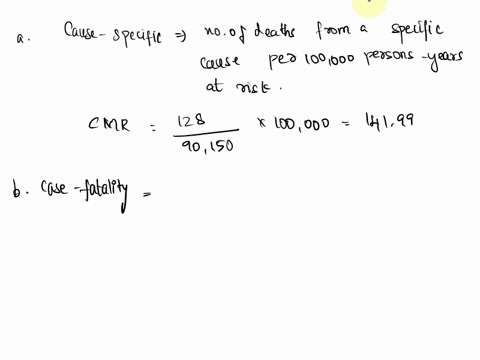 a. Cause-specific => no. of deaths from a specific
cause per 100,000 persons-years
at risk.
CMR = 128 / 90,150 × 100,000 = 141.99
b. Case-fatality =